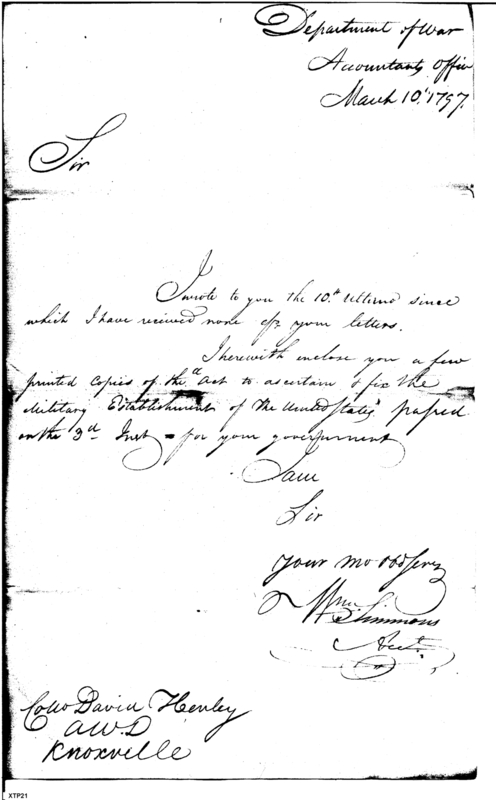 Department of War
Accountants Office
March 10th 1797.
Sir
I wrote to you the 10th Ultimo since
which I have received none of your letters.
I herewith enclose you a few
printed copies of the "act to ascertain & fix the
Military Establishment of the United States" passed
on the 3d Inst for your government
I am
Sir
Your Mo Obd Serv
Wm Simmons
Acct.
Collo David Henley
AWD
Knoxville
XTP21